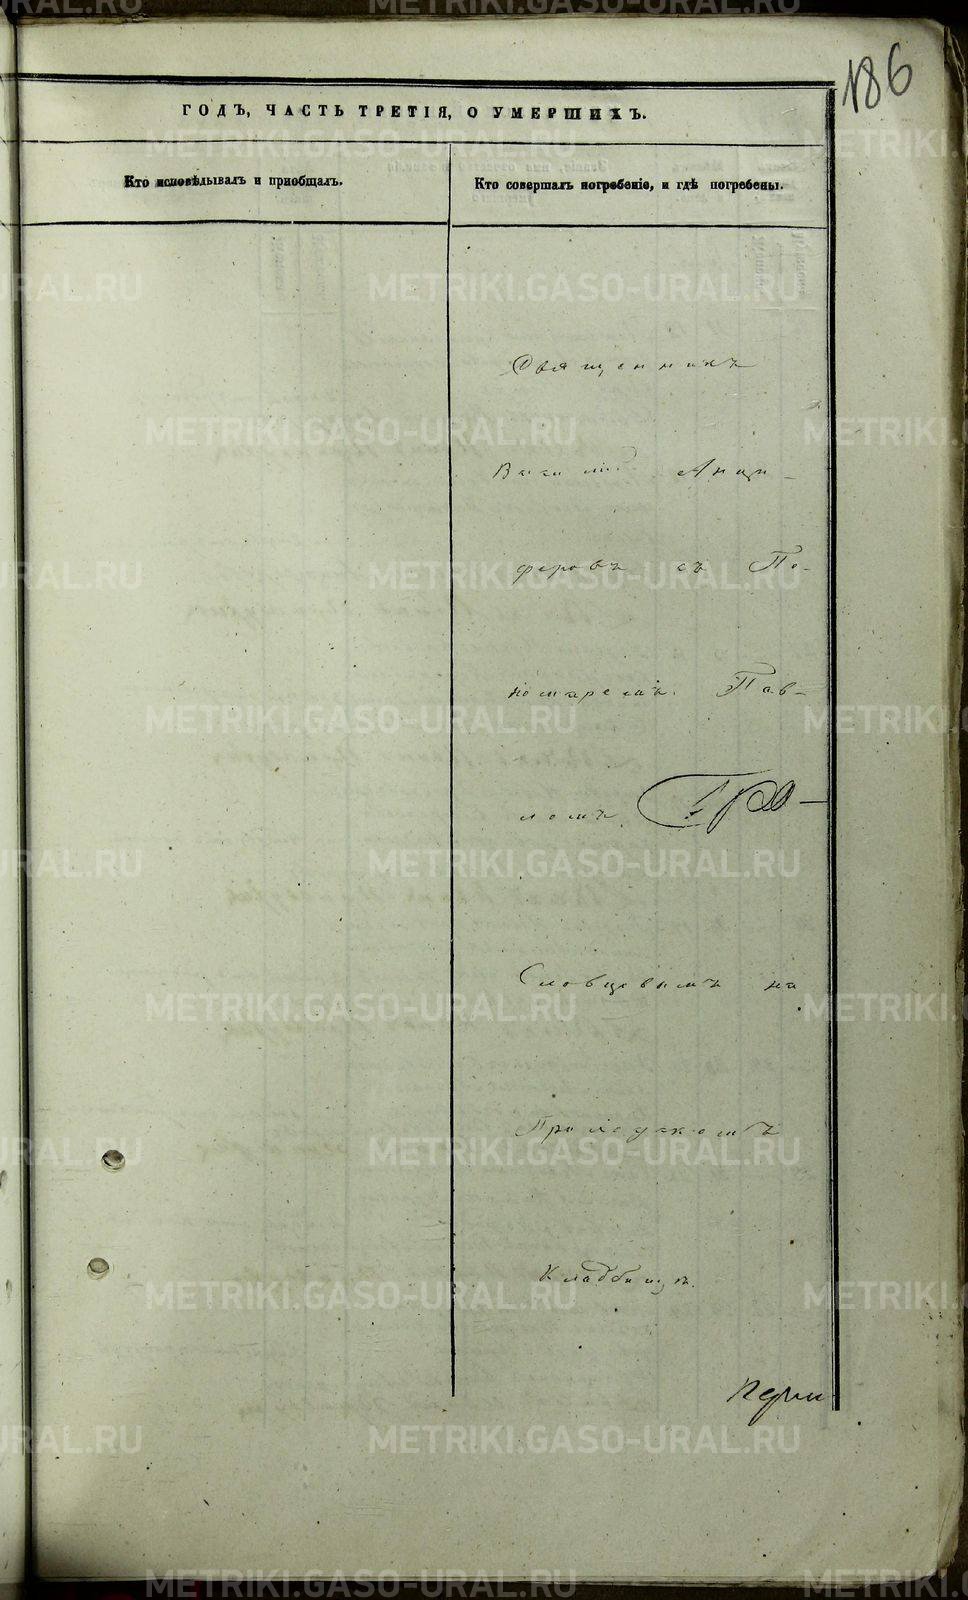 186
ГОДЪ, ЧАСТЬ ТРЕТІЯ, О УМЕРШИХЪ.
Кто исповѣдывалъ и пріобщалъ.
Кто совершалъ погребеніе, и гдѣ погребены.
Священникъ
Василій Анци-
феровъ съ По-
номаремъ Пав-
ломъ
Словцевымъ на
Приходскомъ
Кладбищѣ.
METRIKI.GASO-URAL.RU